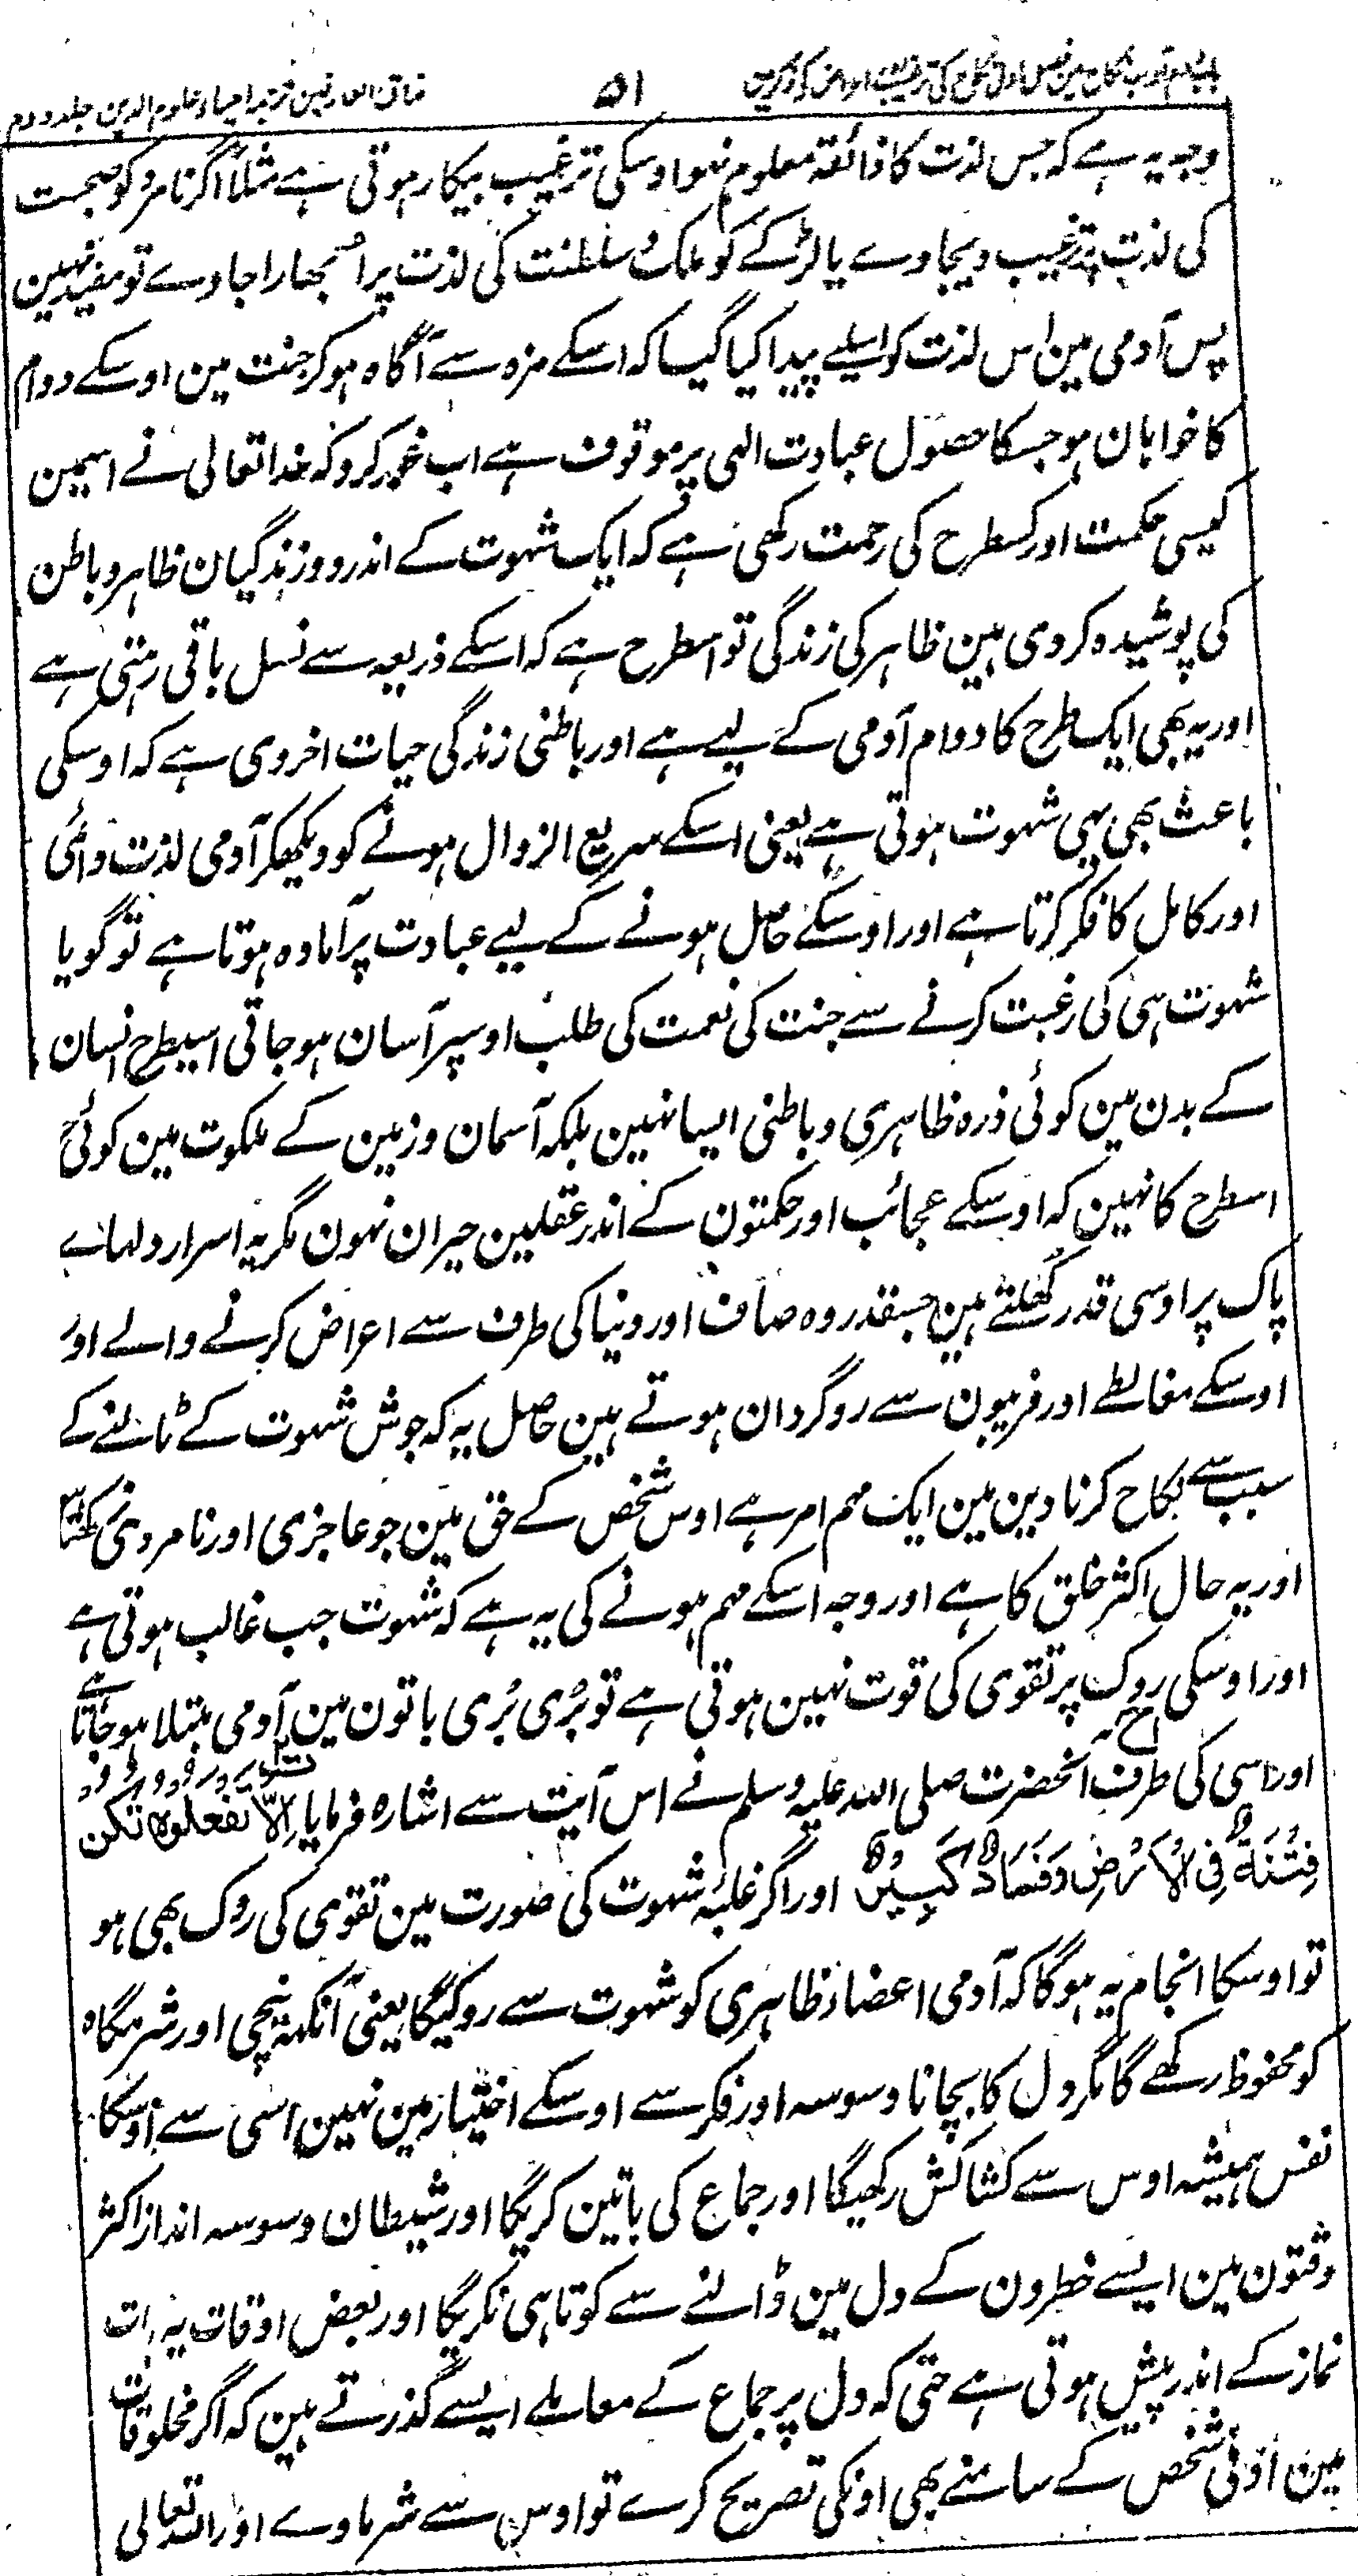 ۵۱
مذاق العارفین ترجمہ احیاء علوم الدین جلد دوم
وجہ یہ ہے کہ جس لذت کا ذائقہ معلوم نہوا وسکی ترغیب بیکار ہوتی ہے مثلاً اگر نامرد کو صحبت
کی لذت پر ترغیب دیجاوے یا لڑکے کو ملک و سلطنت کی لذت پر اُبھارا جاوے تو مفید نہین
پس آدمی مین اس لذت کو اسلیے پیدا کیا گیا کہ اسکے مزہ سے آگاہ ہو کر جنت مین اوسکے دوام
کا خواہان ہو جسکا حصول عبادت الٰہی پر موقوف ہے اب غور کرو کہ خدا تعالی نے اسمین
کیسی حکمت اور کسطرح کی رحمت رکھی ہے کہ ایک شہوت کے اندر دو زندگیان ظاہر و باطن
کی پوشیدہ کر دی ہین ظاہر کی زندگی تو اسطرح ہے کہ اسکے ذریعہ سے نسل باقی رہتی ہے
اور یہ بھی ایک طرح کا دوام آدمی کے لیے ہے اور باطنی زندگی حیات اخروی ہے کہ اوسکی
باعث بھی یہی شہوت ہوتی ہے یعنی اسکے سریع الزوال ہونے کو دیکھکر آدمی لذت دائمی
اور کامل کا فکر کرتا ہے اور اوسکے حاصل ہونے کے لیے عبادت پر آمادہ ہوتا ہے تو گویا
شہوت ہی کی رغبت کرنے سے جنت کی نعمت کی طلب اوسپر آسان ہو جاتی اسیطرح انسان
کے بدن مین کوئی ذرہ ظاہری و باطنی ایسا نہین بلکہ آسمان و زمین کے ملکوت مین کوئی
اسطرح کا نہین کہ اوسکے عجائب اور حکمتون کے اندر عقلین حیران نہون مگر یہ اسرار دلہاے
پاک پر اوسی قدر کُھلتے ہین جسقدر وہ صاف اور دنیا کی طرف سے اعراض کرنے والے اور
اوسکے مغالطے اور فریبون سے روگردان ہوتے ہین حاصل یہ کہ جوش شہوت کے ٹالنے کے
سبب سے نکاح کرنا دین مین ایک مہم امر ہے اوس شخص کے حق مین جو عاجزی اور نامردی نرکھتا
اور یہ حال اکثر خلق کا ہے اور وجہ اسکے مہم ہونے کی یہ ہے کہ شہوت جب غالب ہوتی ہے
اور اوسکی روک پر تقوی کی قوت نہین ہوتی ہے تو بُری بُری باتون مین آدمی مبتلا ہو جاتا ہے
اور اسی کی طرف آنحضرت صلی اللہ علیہ وسلم نے اس آیت سے اشارہ فرمایا اِلَّا تَفْعَلُوْهُ تَكُنْ
فِتْنَةٌ فِی الْاَرْضِ وَفَسَادٌ كَبِيْرٌ اور اگر غلبۂ شہوت کی صورت مین تقوی کی روک بھی ہو
تو اوسکا انجام یہ ہوگا کہ آدمی اعضاء ظاہری کو شہوت سے روکیگا یعنی آنکھ نیچی اور شرمگاہ
کو محفوظ رکھے گا مگر دل کا بچانا وسوسہ اور فکر سے اوسکے اختیار مین نہین اسی سے اوسکا
نفس ہمیشہ اوس سے کشاکش رکھیگا اور جماع کی باتین کریگا اور شیطان وسوسہ انداز اکثر
وقتون مین ایسے خطرون کے دل مین ڈالنے سے کوتاہی نکریگا اور بعض اوقات یہ بات
نماز کے اندر پیش ہوتی ہے حتی کہ دل پر جماع کے معاملے ایسے گذرتے ہین کہ اگر مخلوقات
مین ادنٰی شخص کے سامنے بھی اونکی تصریح کرے تو اوس سے شرماوے اور اللہ تعالی